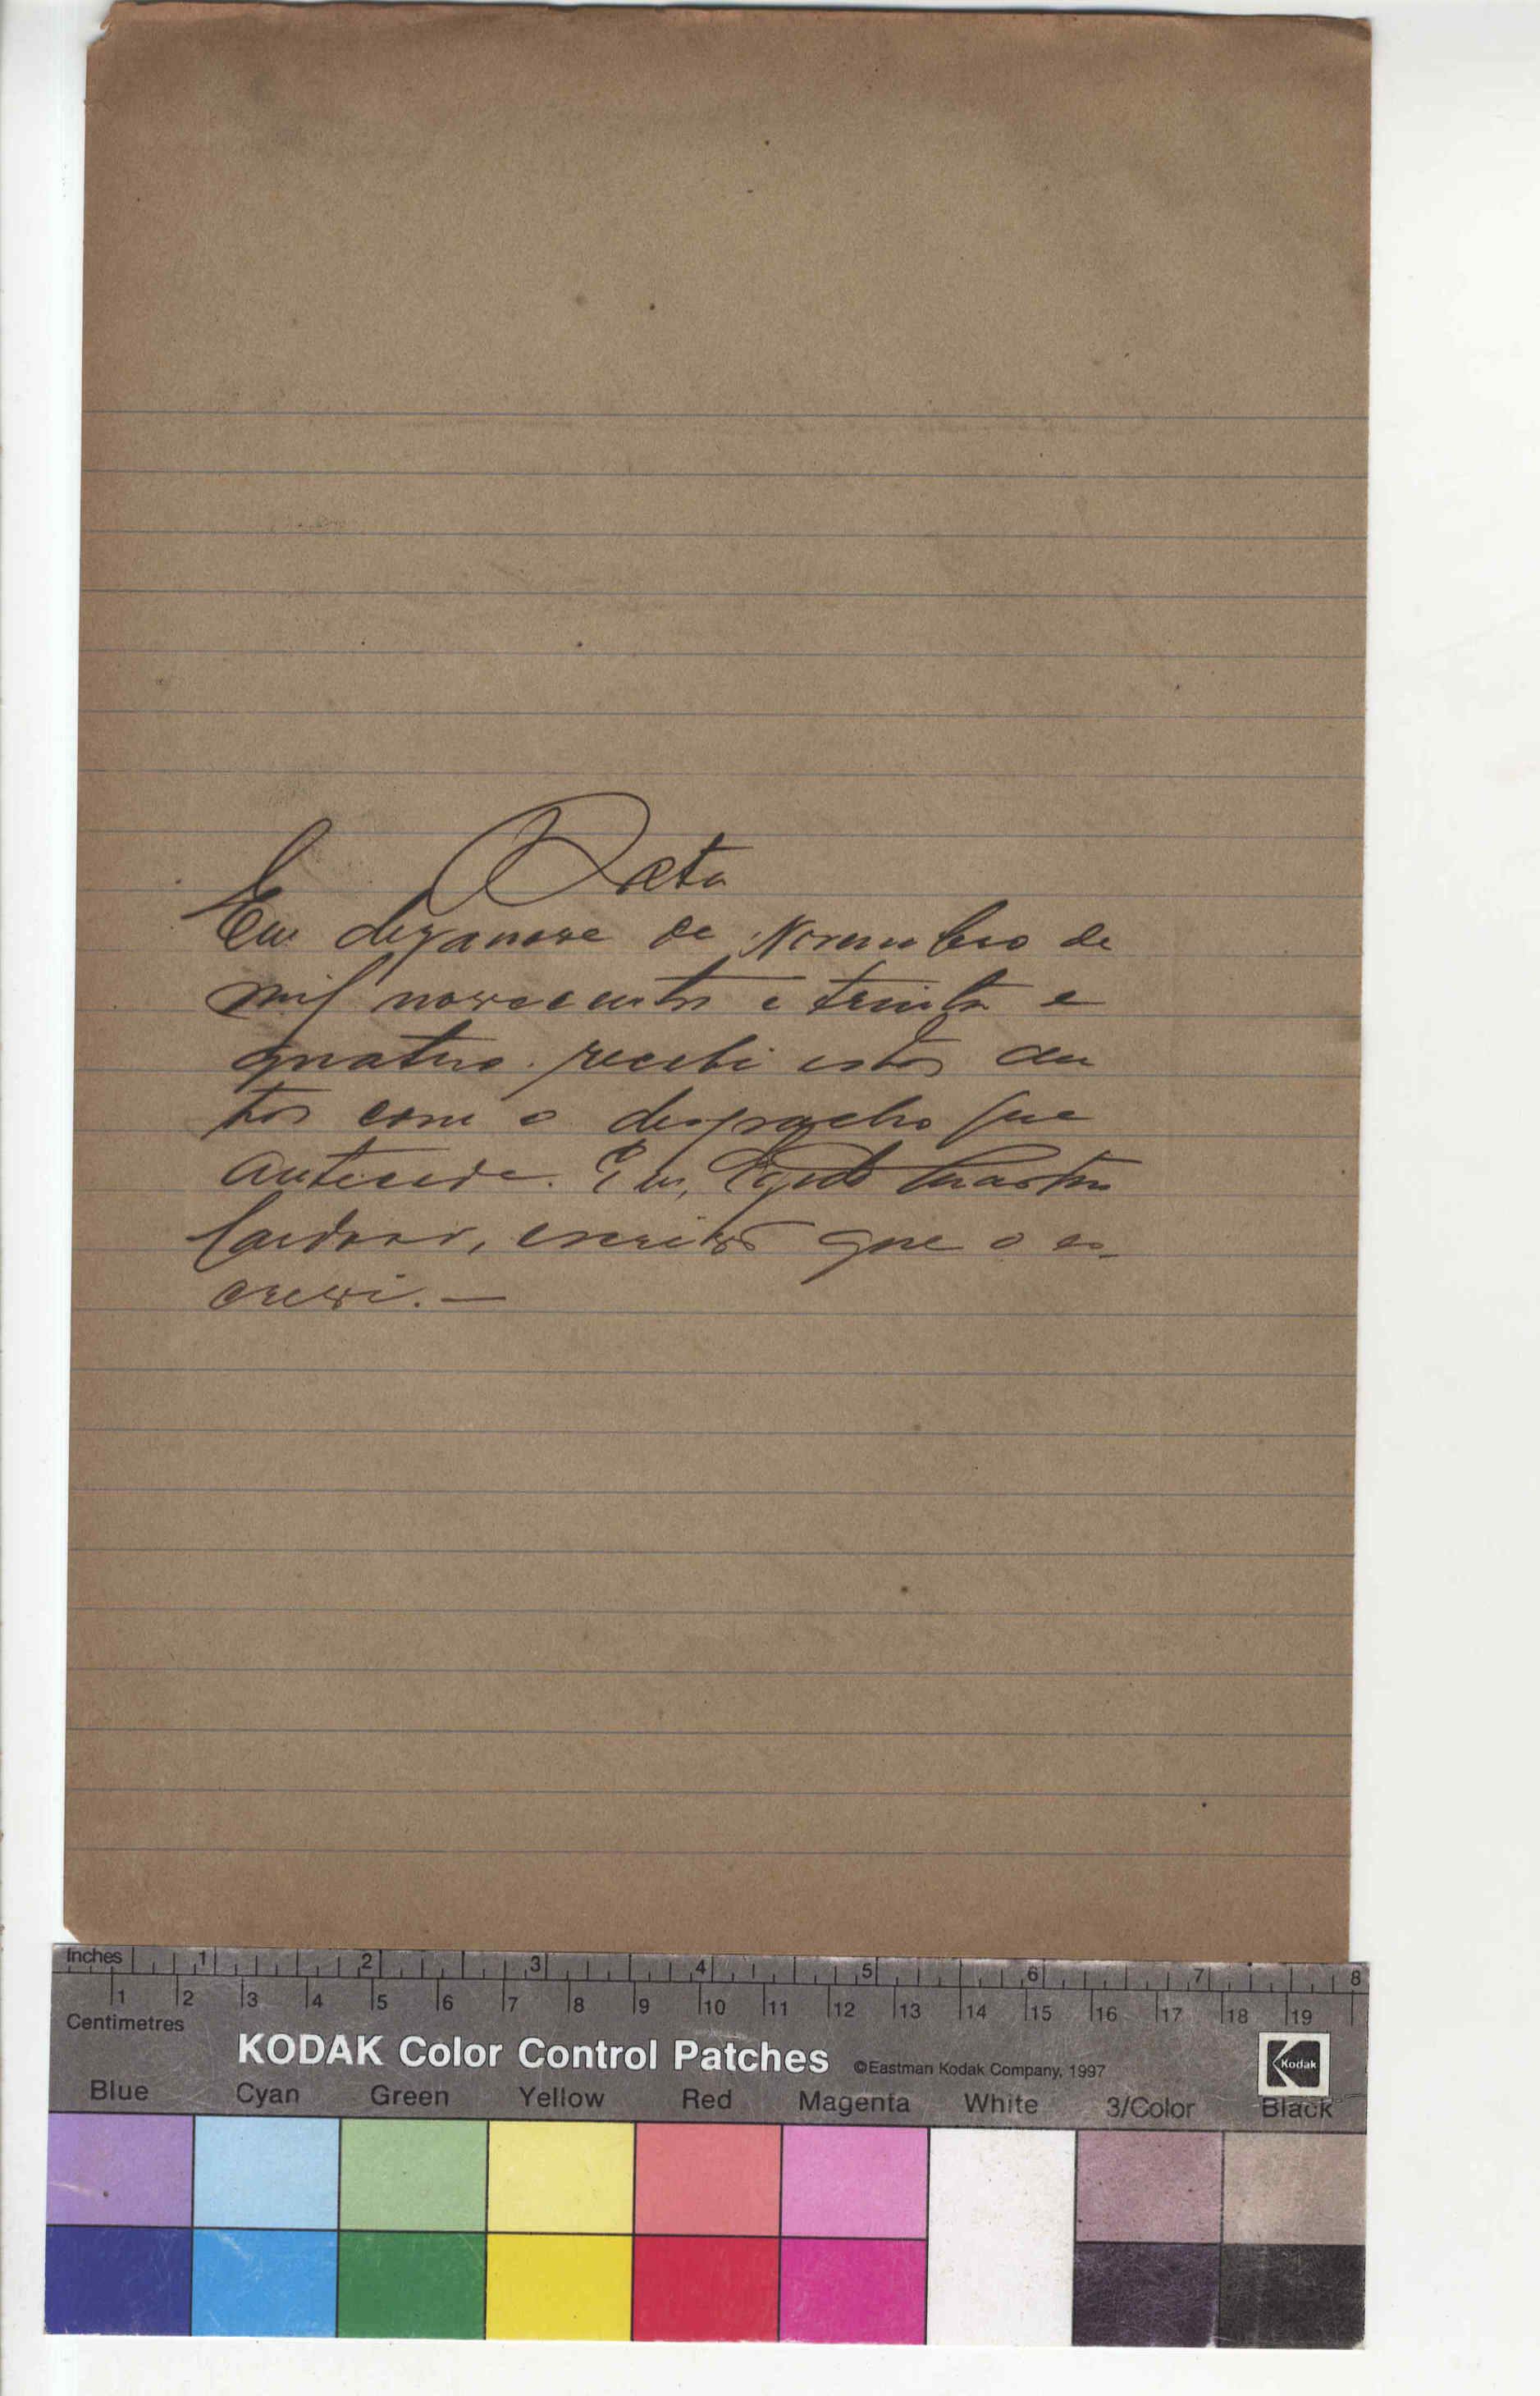 Data
Em dezanove de Novembro de
mil novecentos e trinta e
quatro recebi estes au
tos com o despacho que
antecede. Eu, Martins
Cardoso, escrivão que o es-
crevi. —
Inches 1 2 3 4 5 6 7 8
1 2 3 4 5 6 7 8 9 10 11 12 13 14 15 16 17 18 19
Centimetres
KODAK Color Control Patches ©Eastman Kodak Company, 1997 Kodak
Blue Cyan Green Yellow Red Magenta White 3/Color Black